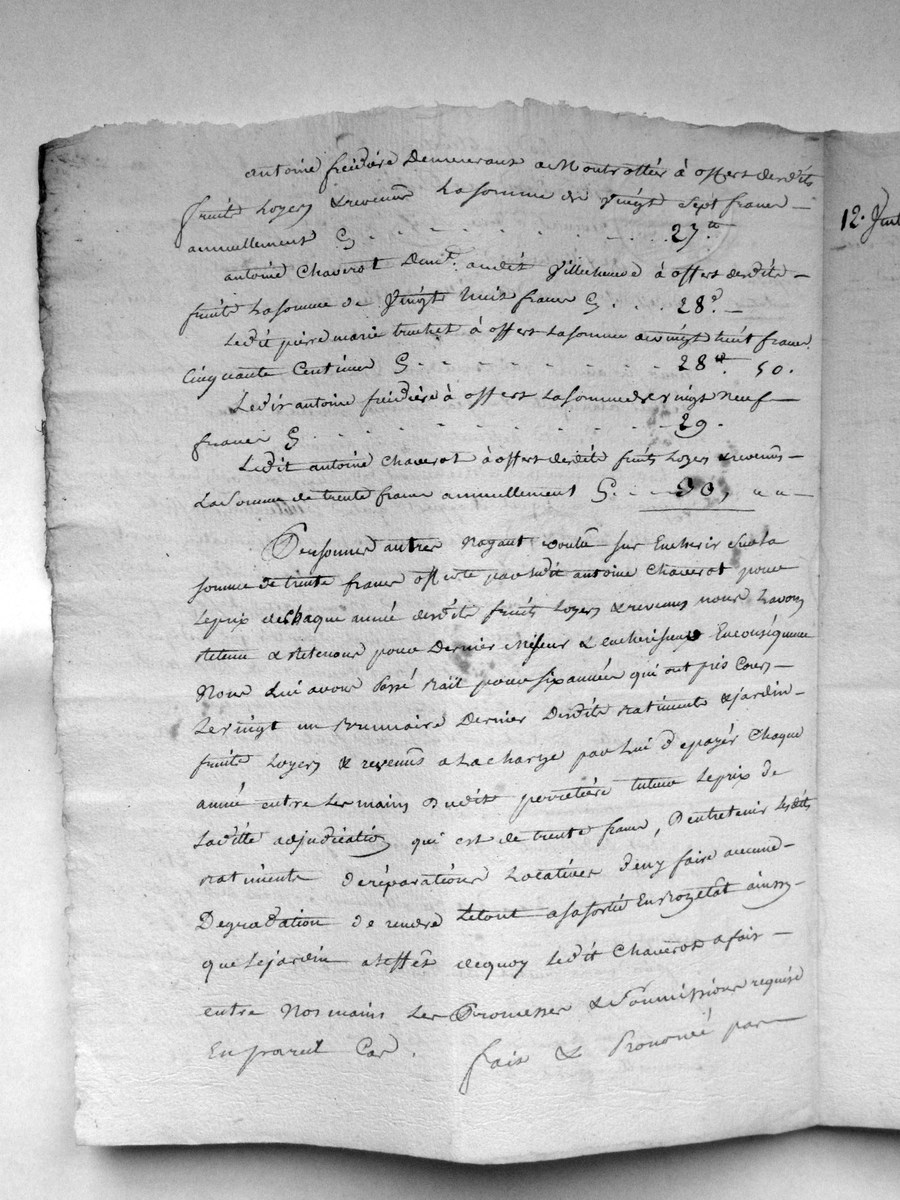 antoine freidière Demeurant a Montrottier à offert desdits
fruits Loyers & revenus La somme de vingt sept francs
annuellement Cy . . . . . . . . 27#
antoine Chaverot Dem.t audit Villecheneve à offert desdits
fruits La somme de Vingt huit francs Cy . . . 28#
Ledit pierre marie truchet à offert La somme de vingt huit francs
Cinquante Centimes Cy . . . . . . 28# 50.
Ledit antoine freidière à offert La somme de vingt neuf
francs Cy . . . . . . . . . 29.
Ledit antoine Chaverot à offert desdits fruits Loyers & revenus
La Somme de trente francs annuellement Cy . . 30, " "
Personnes autres N'ayant voulu sur Encherir Sur la
somme de trente francs offerte par ledit antoine Chaverot pour
Le prix de Chaque année desdits fruits Loyers & revenus nous Lavons
retenu & retenons pour Dernier Miseur & Encherisseur En conséquence
Nous Lui avons Passé Bail pour six années qui ont pris Cours
Le vingt un Brumaire Dernier Desdits Batiments & jardin
fruits Loyers & revenus a La charge par Lui de payér Chaque
année entre Les mains dudit tuteur Le prix de
Laditte adjudication qui est de trente francs, D'entretenir Lesdits
Batiments de réparations Locatives d'en y faire aucune
Degradation de rendre Letout a sa sortie En Bon etat ainsy
que Le jardin a Leffet dequoy Ledit Chaverot a fait
entre Nos mains Les Promesses & Soumissions requise
En pareil Cas. fait & Prononcé par
12. Juil